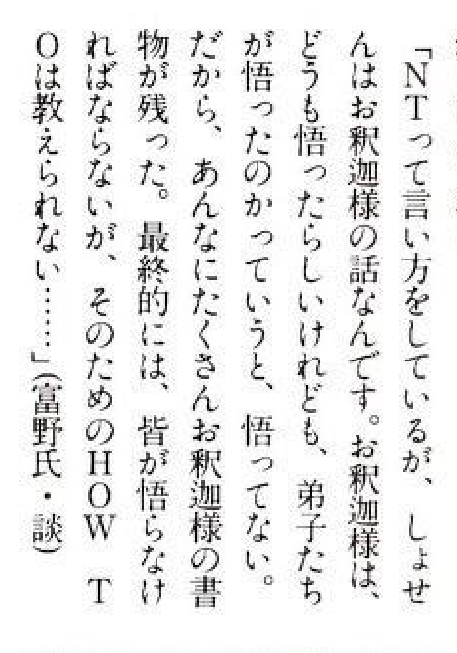 「NTって言い方をしているが、しょせ
んはお釈迦様の話なんです。お釈迦様は、
どうも悟ったらしいけれども、弟子たち
が悟ったのかっていうと、悟ってない。
だから、あんなにたくさんお釈迦様の書
物が残った。最終的には、皆が悟らなけ
ればならないが、そのためのHOW T
Oは教えられない……」(富野氏・談)